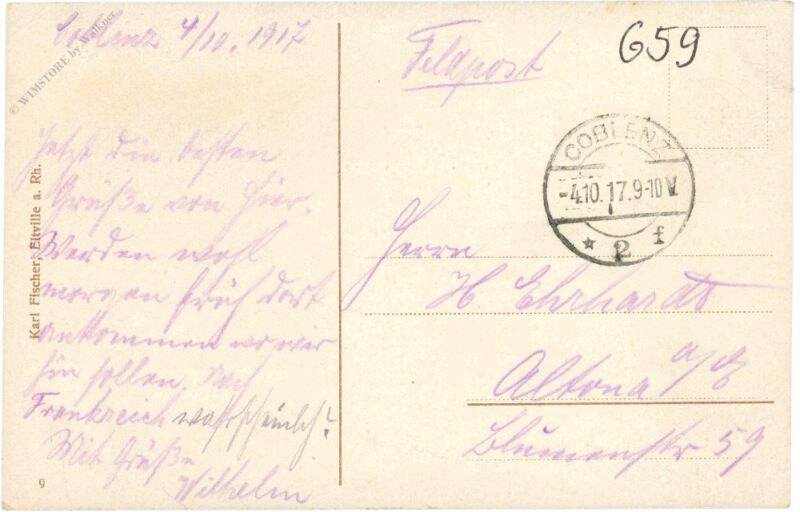 © WIMSTORE by Walkner
Coblenz 4/10. 1917
Jetzt die besten
Grüße von hier.
Werden wohl
morgen früh dort
ankommen wo wir
hin sollen. Nach
Frankreich wahrscheinlich?
Mit Grüße
Wilhelm
Karl Fischer, Eltville a. Rh.
9
Feldpost
659
COBLENZ
-4.10.17.9-10V.
* 2 f
Herrn
H. Ehrhardt
Altona a/E
Blumenstr 59